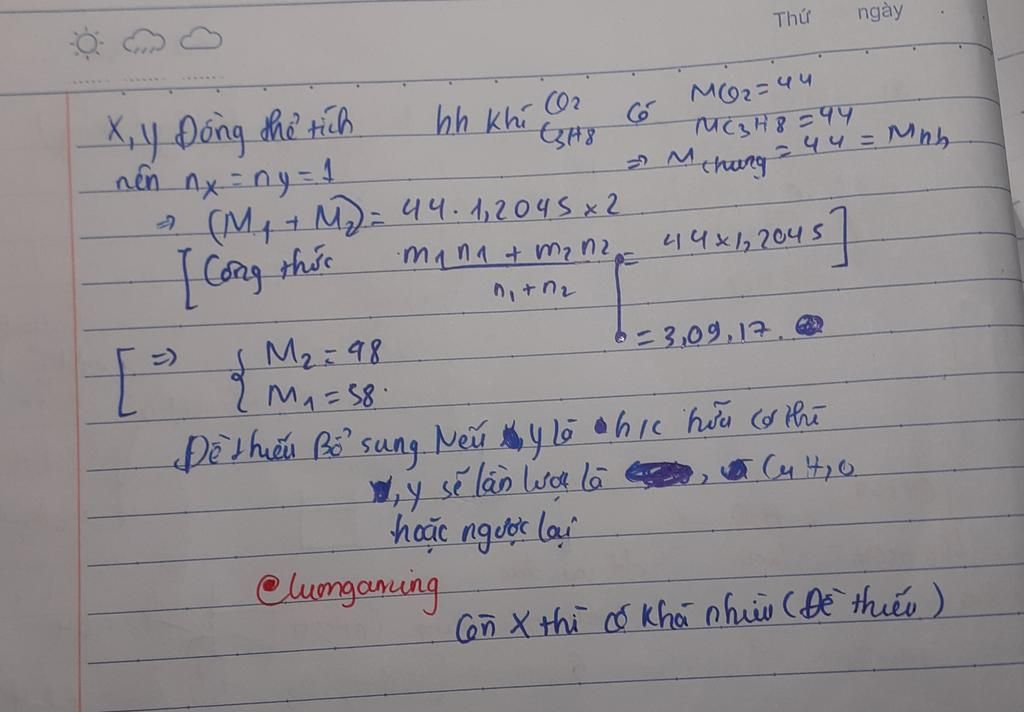 Thứ ngày
X, y Đồng thể tích hh khí CO2 C3H8 Có MCO2 = 44
MC3H8 = 44
nên nx = ny = 1 => M chung = 44 = Mhh
=> (M1 + M2) = 44 . 1,2045 x 2
[Công thức m1n1 + m2n2 / n1 + n2 = 44 x 1,2045]
= 3,09.17.
[ => { M2 = 48
M1 = 58.
Đề thiếu Bổ sung Nếu y là h/c hữu cơ thì
, y sẽ lần lượt là , C4H10
hoặc ngược lại
@lumgaming
Còn X thì có khá nhiều (Đề thiếu)